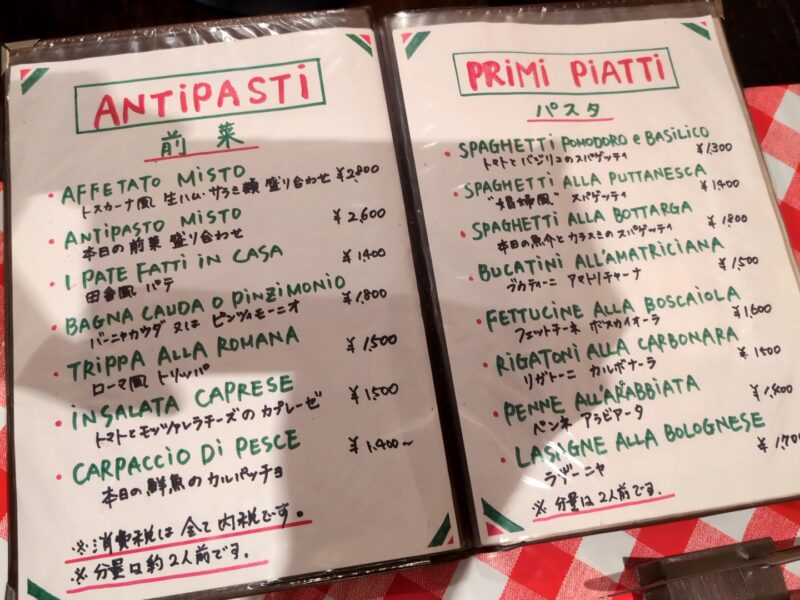 ANTiPASTi
前菜
・AFFETATO MiSTO
トスカーナ風 生ハム・サラミ類 盛り合わせ ¥2,800
・ANTiPASTO MiSTO
本日の前菜 盛り合わせ ¥2,600
・I PATE FATTi iN CASA
田舎風 パテ ¥1,400
・BAGNA CAUDA O PiNZiMONiO
バーニャカウダ 又は ピンツィモーニオ ¥1,800
・TRiPPA ALLA ROMANA
ローマ風 トリッパ ¥1,500
・iNSALATA CAPRESE
トマトとモッツァレラチーズの カプレーゼ ¥1,500
・CARPACCiO Di PESCE
本日の鮮魚の カルパッチョ ¥1,400~
※消費税は全て内税です。
※分量は約2人前です。
PRiMi PiATTi
パスタ
・SPAGHETTi POMODORO e BASiLiCO
トマトとバジリコのスパゲッティ ¥1,300
・SPAGHETTi ALLA PUTTANESCA
"娼婦風" スパゲッティ ¥1,400
・SPAGHETTi ALLA BOTTARGA
本日の魚介とカラスミのスパゲッティ ¥1,800
・BUCATiNi ALL'AMATRiCiANA
ブカティーニ アマトリチャーナ ¥1,500
・FETTUCiNE ALLA BOSCAiOLA
フェットチーネ ボスカイオーラ ¥1,600
・RiGATONi ALLA CARBONARA
リガトーニ カルボナーラ ¥1,500
・PENNE ALL'ARABBiATA
ペンネ アラビアータ
・LASAGNE ALLA BOLOGNESE
ラザーニャ ¥1,700
※分量は2人前です。